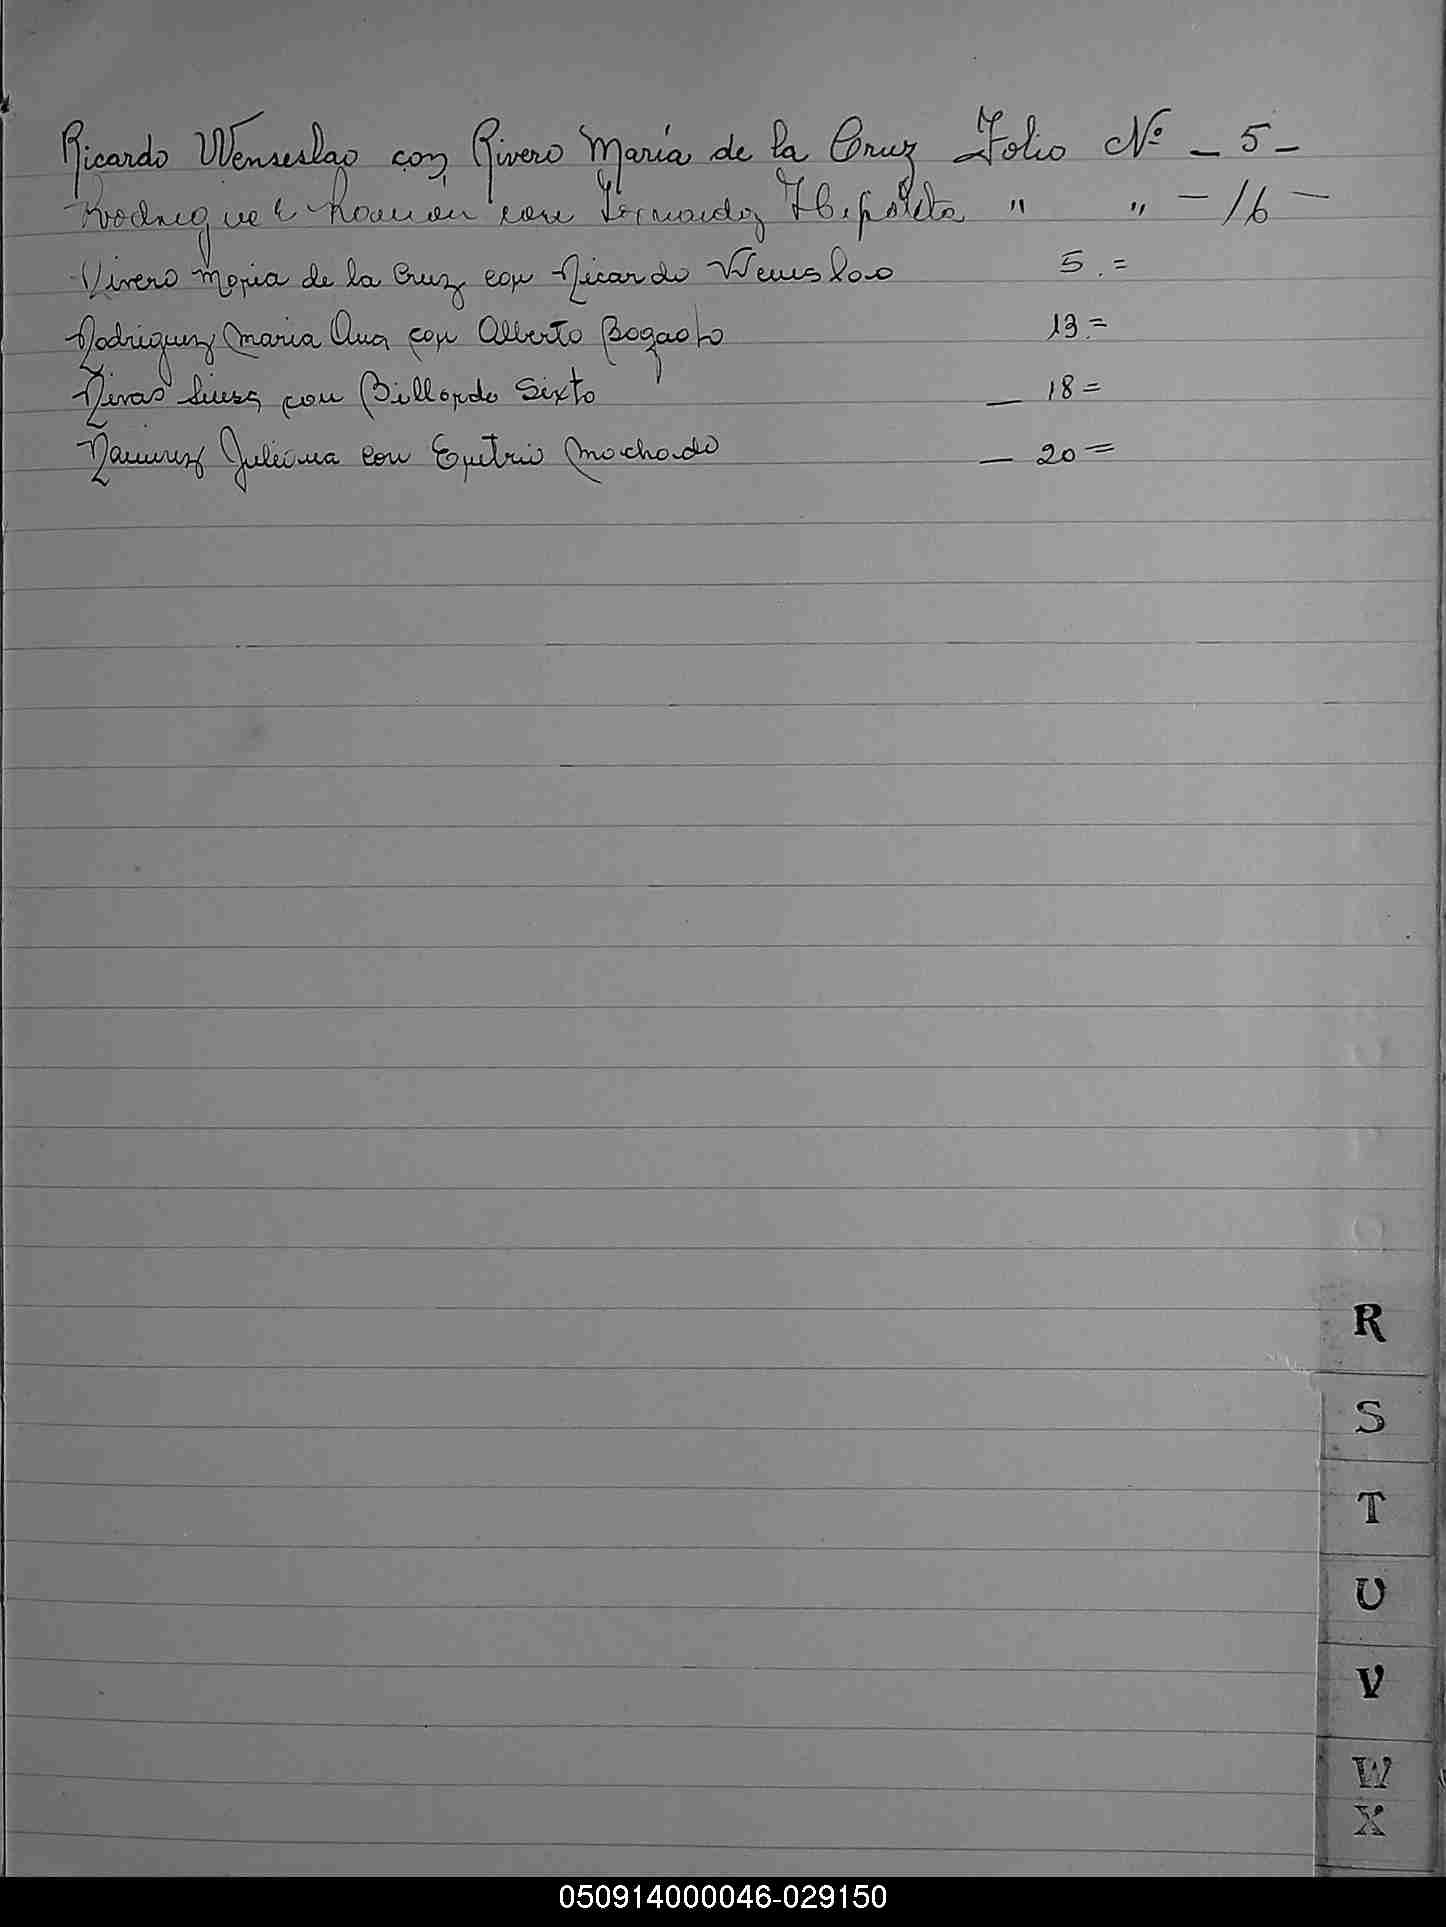 Ricardo Wenseslao con Rivero María de la Cruz Folio Nº - 5 -
Rodriguez Ramón con Fernandez Hipolita " " - 16 -
Rivero Maria de la Cruz con Ricardo Wenslao 5. =
Rodriguez Maria Ana con Alberto 13. =
Rivas con Sixto - 18 =
Ramirez Juliana con Machado - 20 =
R
S
T
U
V
W
X
050914000046-029150